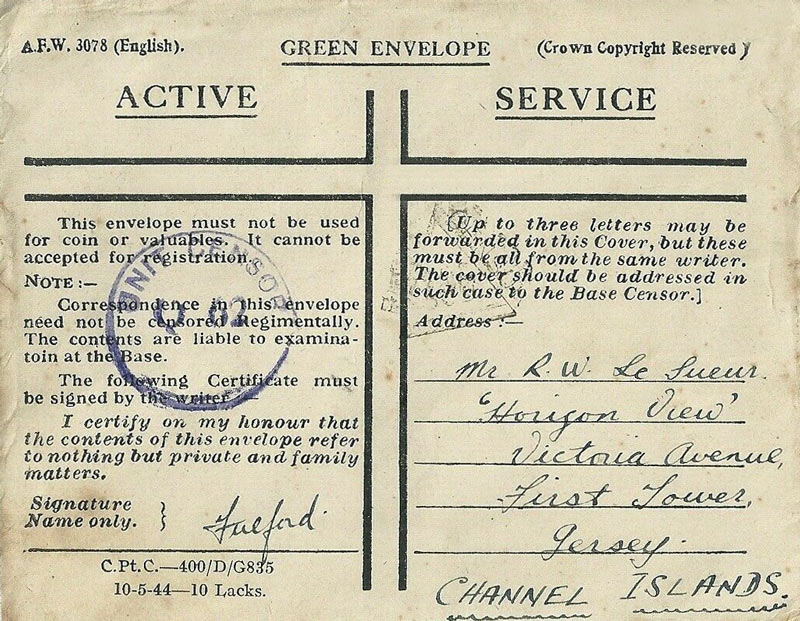 A.F.W. 3078 (English).
GREEN ENVELOPE
(Crown Copyright Reserved)
ACTIVE
SERVICE
This envelope must not be used
for coin or valuables. It cannot be
accepted for registration.
NOTE :—
Correspondence in this envelope
need not be censored Regimentally.
The contents are liable to examina-
toin at the Base.
The following Certificate must
be signed by the writer :—
I certify on my honour that
the contents of this envelope refer
to nothing but private and family
matters.
Signature
Name only. }
Fulford.
C.Pt.C.—400/D/G835
10-5-44—10 Lacks.
UNIT CENSOR
62
[Up to three letters may be
forwarded in this Cover, but these
must be all from the same writer.
The cover should be addressed in
such case to the Base Censor.]
Address :—
Mr R. W. Le Sueur.
'Horizon View'
Victoria Avenue,
First Tower,
Jersey.
CHANNEL ISLANDS.